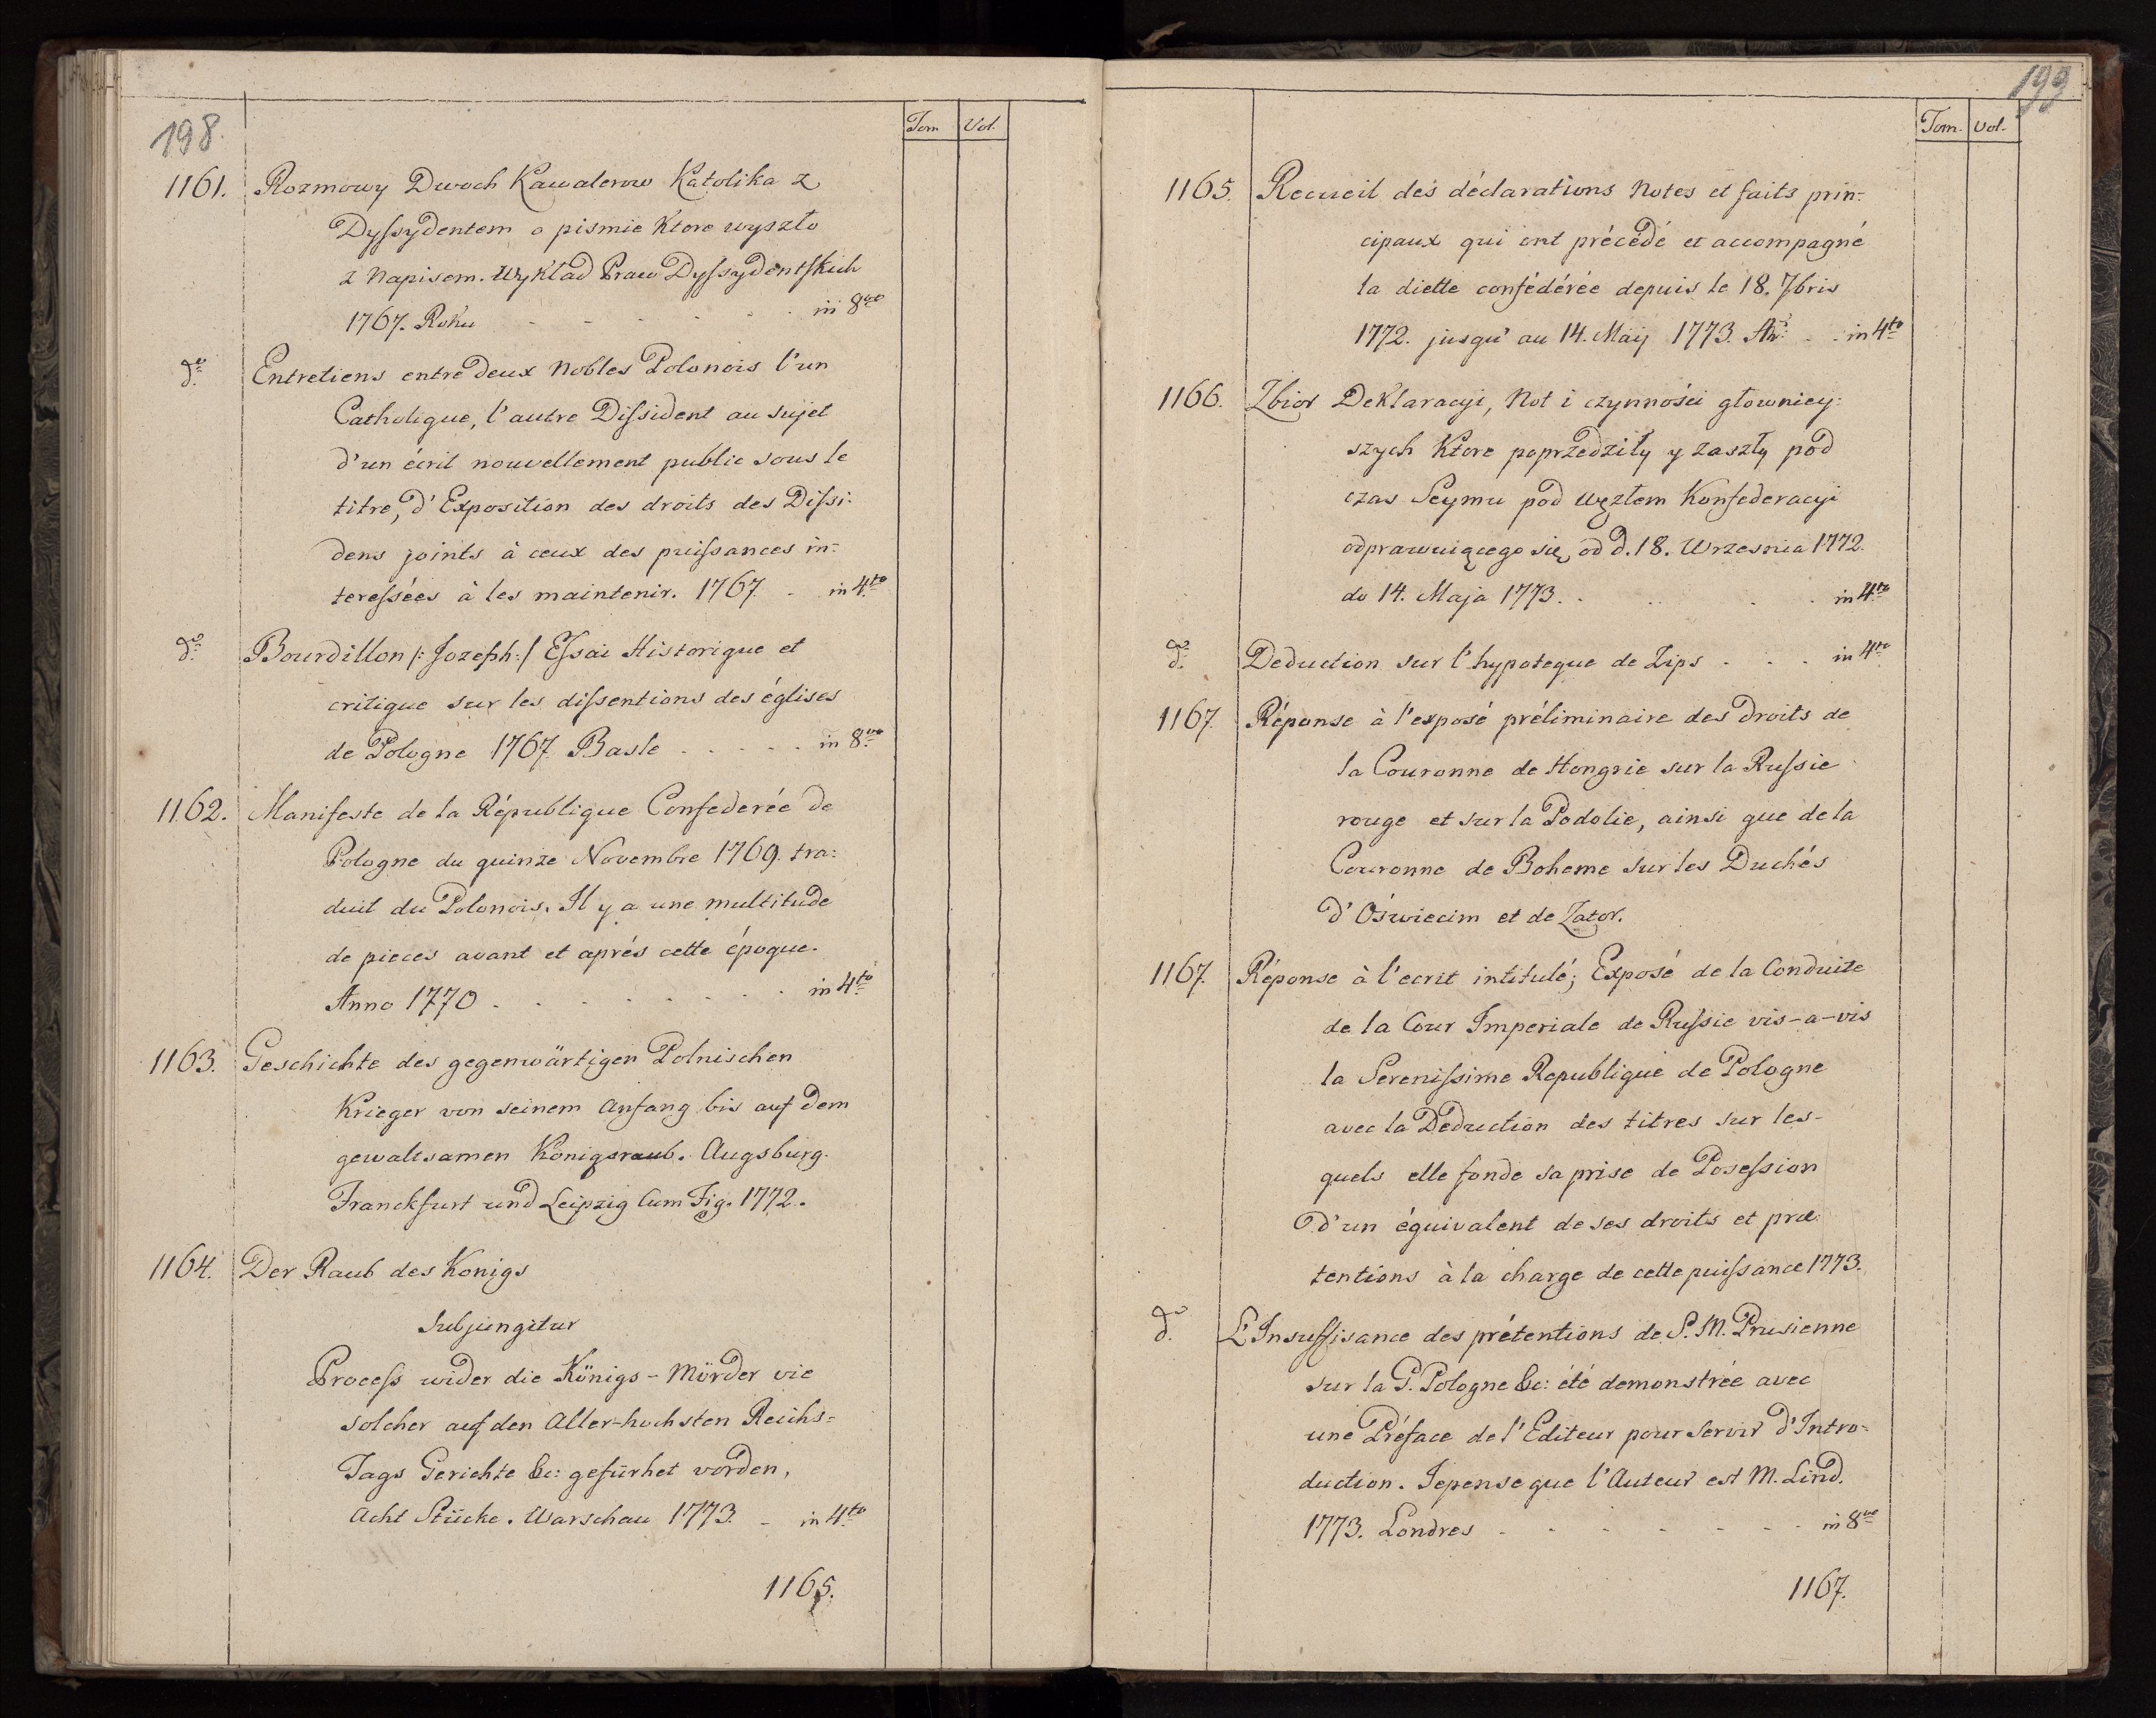 198.
Tom Vol.
1161. Rozmowy Dwoch Kawalerow Katolika z
Dyssydentem o pismie Ktore wyszło
z Napisem. Wykład Praw Dyssydentskich
1767. Roku - - - - - - in 8vo
do. Entretiens entre deux Nobles Polonois l'un
Catholique, l'autre Dissident au sujet
d'un écrit nouvellement public sous le
titre, d'Exposition des droits des Dissi:
dens joints à ceux des puissances in:
teressées à les maintenir. 1767. - in 4to
do. Bourdillon /: Jozeph :/ Essai Historique et
critique sur les dissentions des églises
de Pologne 1767. Basle . . . . . in 8vo
1162. Manifeste de la République Confederée de
Pologne du quinze Novembre 1769. tra:
duit du Polonois. Il y a une multitude
de pieces avant et aprés cette époque.
Anno 1770 . . . . . . . . in 4to
1163. Geschichte des gegenwärtigen Polnischen
Krieger von seinem Anfang bis auf dem
gewaltsamen Königsraub. Augsburg.
Franckfurt und Leipzig Cum Fig. 1772.
1164. Der Raub des Konigs
Subjungitur
Process wider die Königs-Mörder vie
solcher auf den Aller-hochsten Reichs=
Tags Gerichte &c: gefürhet vorden,
Acht Stücke. Warschau 1773. - in 4to
1165.
199
Tom. Vol.
1165. Recueil des déclarations Notes et faits prin:
cipaux qui ont précédé et accompagné
la diette confédérée depuis le 18. 7bris
1772. jusqu' au 14. Maij 1773. . . in 4to
1166. Zbior Deklaracyi, Not i czynności głowniey:
szych Ktore poprzedziły y zaszły pod
czas Seymu pod Węzłem Konfederacyi
odprawuiącego się od d. 18. Wrzesnia 1772.
do 14. Maja 1773. . . . . in 4to
do. Deduction sur l'hypoteque de Zips . . . in 4to
1167. Réponse à l'exposé préliminaire des droits de
la Couronne de Hongrie sur la Russie
rouge et sur la Podolie, ainsi que de la
Couronne de Boheme sur les Duchés
d'Óswiecim et de Zator.
1167. Réponse à l'ecrit intitulé; Exposé de la Conduite
de la Cour Imperiale de Russie vis-a-vis
la Serenissime Republique de Pologne
avec la Deduction des titres sur les-
quels elle fonde sa prise de Posession
d'un équivalent de ses droits et præ:
tentions à la charge de cette puissance 1773.
do. L'Insuffisance des prétentions de S. M. Prusienne
sur la G. Pologne &c: été demonstrée avec
une Préface de l'Editeur pour Servir d'Intro-
duction. Je pense que l'Auteur est M. Lind.
1773. Londres - - - - - - - in 8vo
1167.